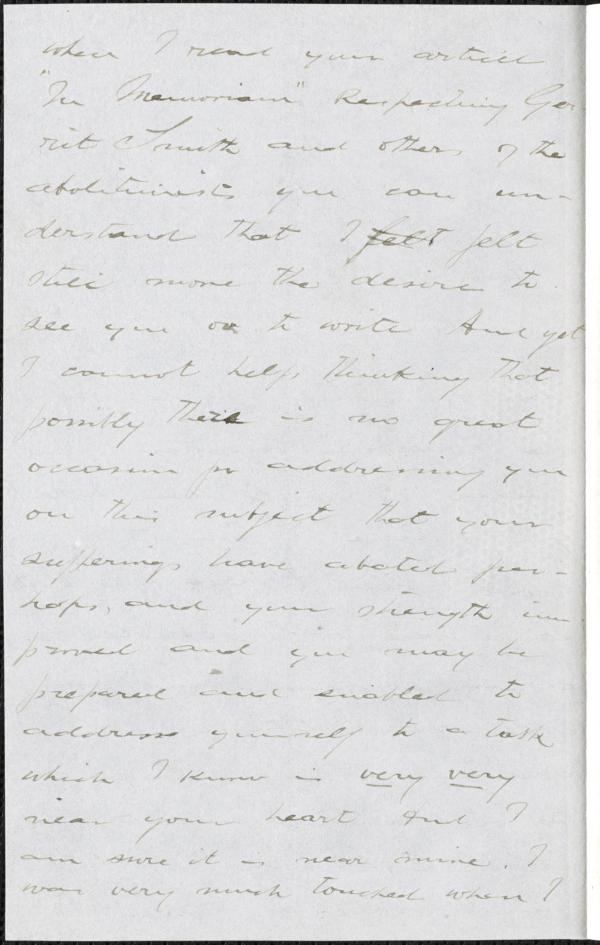 when I read your article
"In Memoriam" Respecting Ger
rit Smith and others of the
abolitionists you can un-
derstand that I felt felt
still more the desire to
see you or to write And yet
I cannot help thinking that
possibly there is no great
occasion for addressing you
on this subject that your
sufferings have abated per-
haps, and your strength im
proved and you may be
prepared and enabled to
address yourself to a task
which I know is very very
near your heart And I
am sure it is near mine. I
was very much touched when I